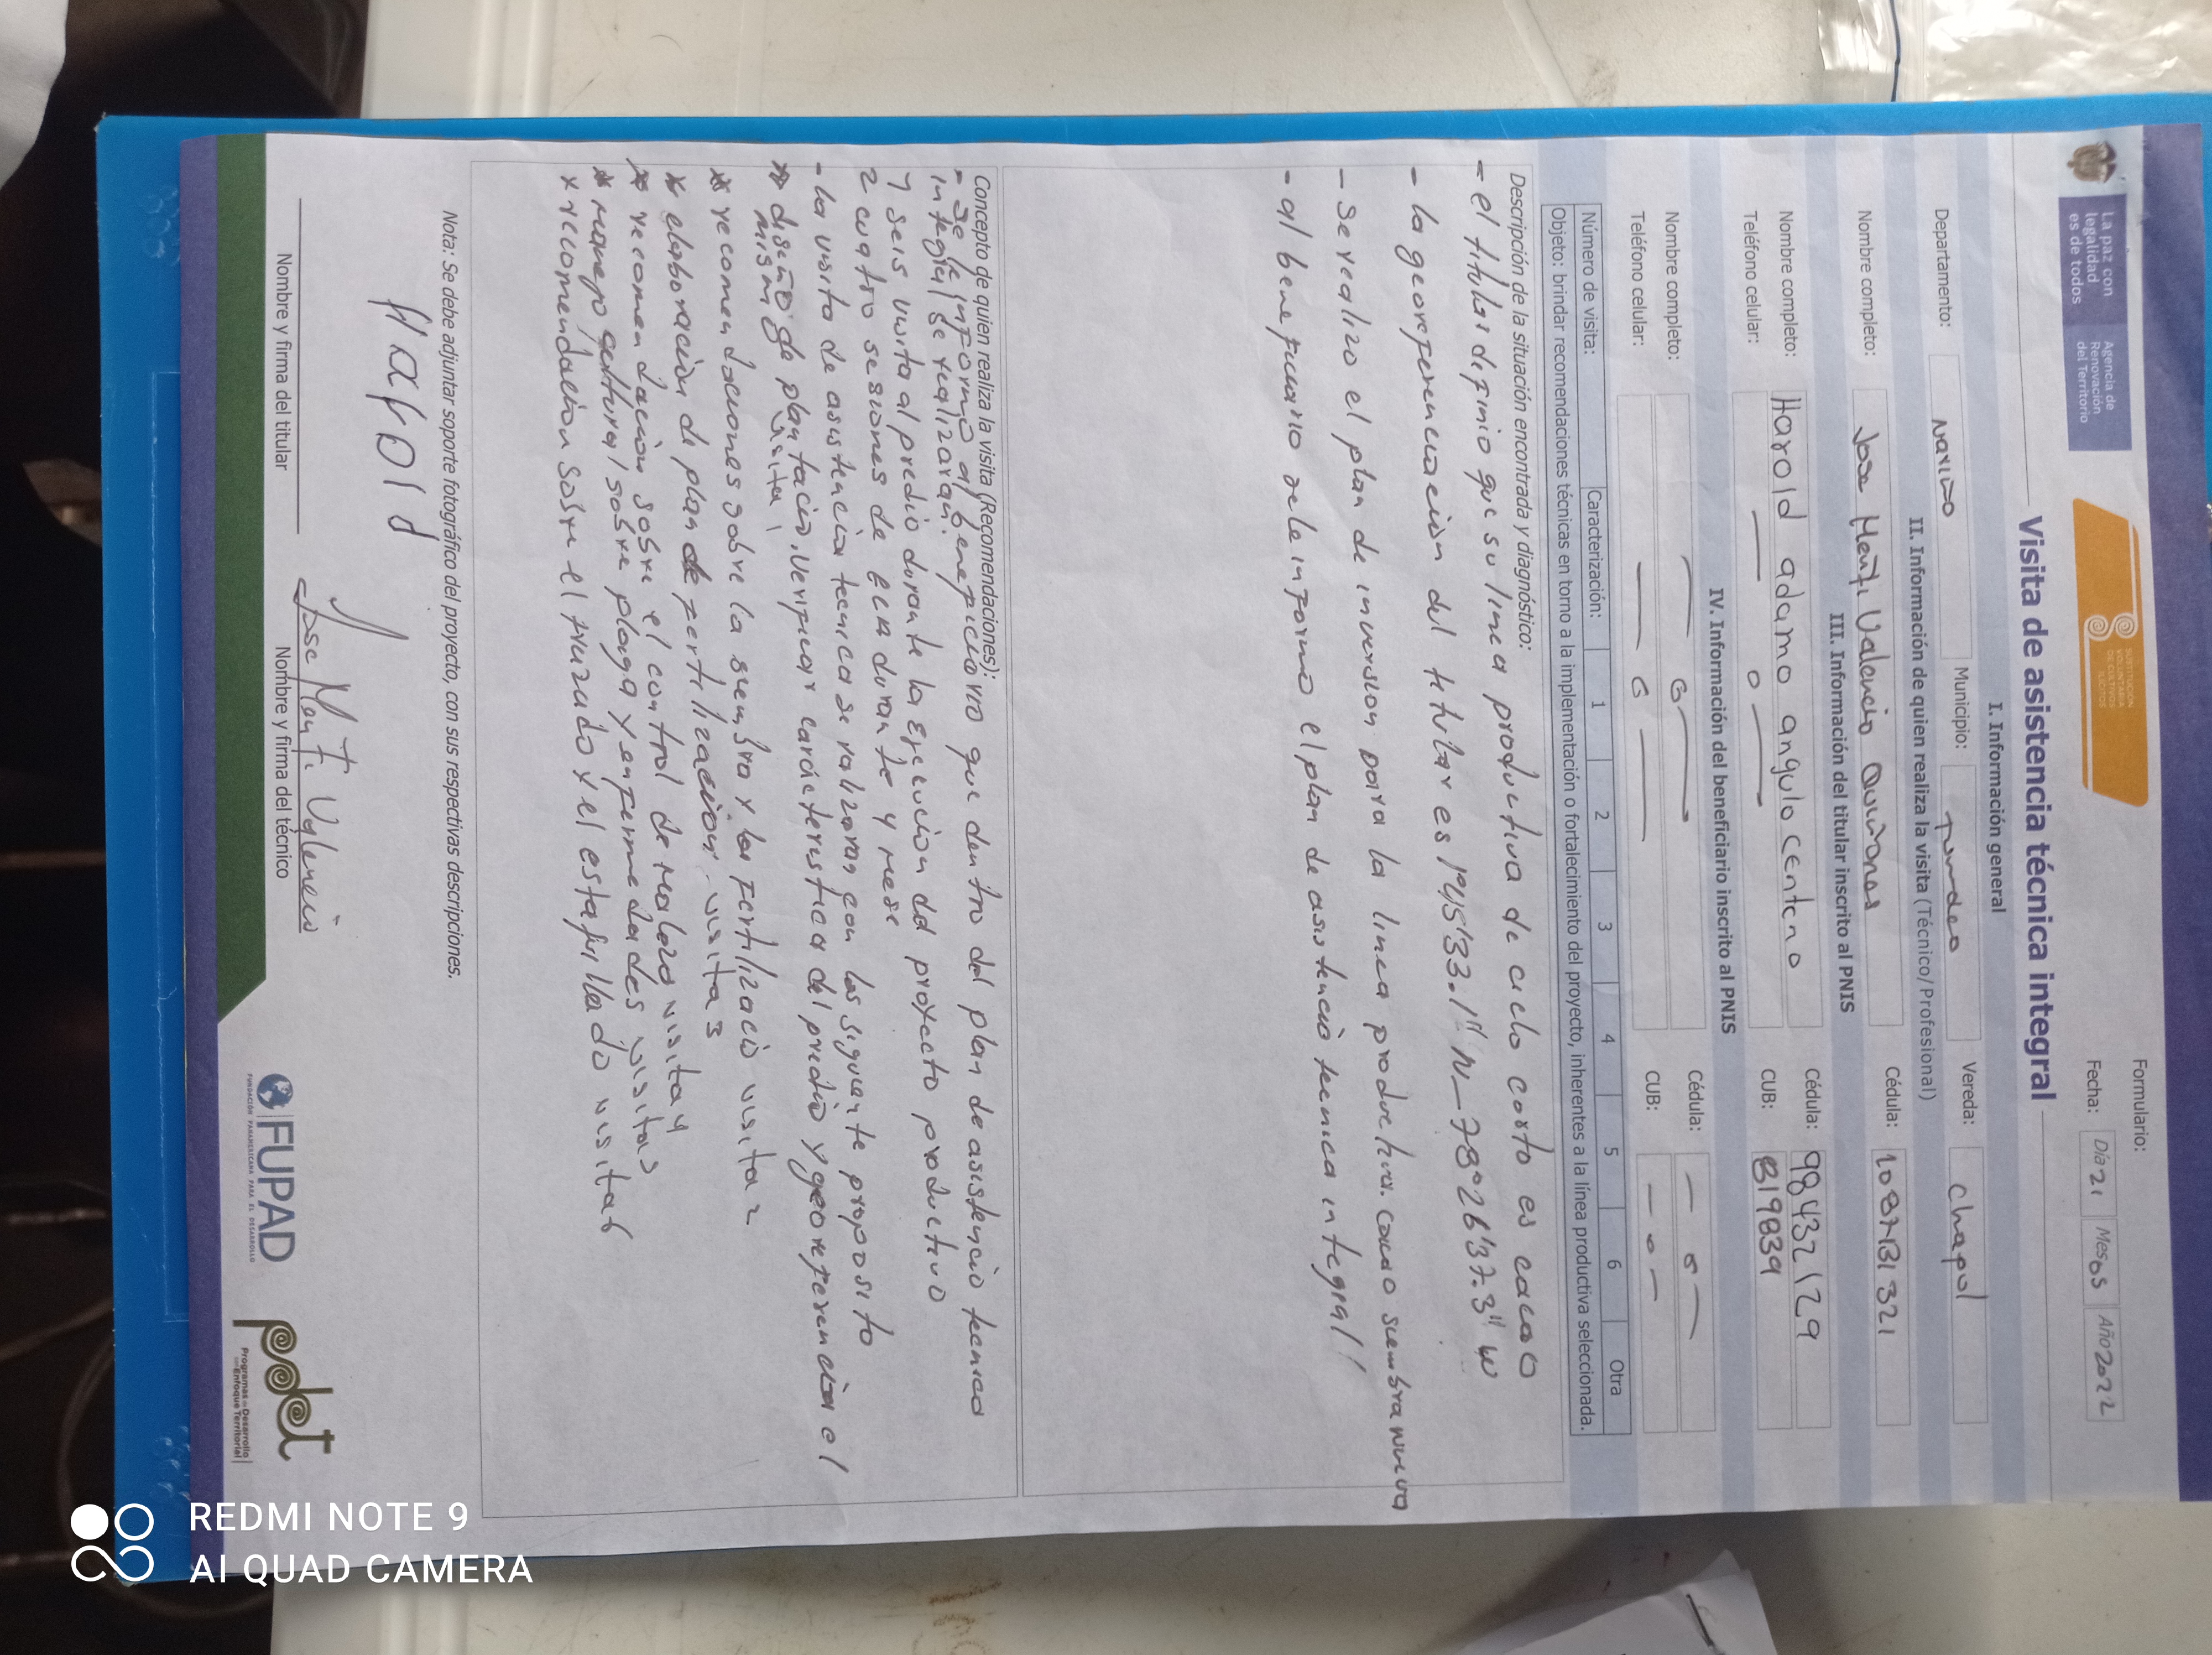 La paz con
legalidad
es de todos
Agencia de
Renovación
del Territorio
SUSTITUCIÓN
VOLUNTARIA
DE CULTIVOS
ILÍCITOS
Formulario:
Fecha: Día 21 Mes 05 Año 2022
Visita de asistencia técnica integral
I. Información general
Departamento: Nariño Municipio: Tumaco Vereda: Chapul
II. Información de quien realiza la visita (Técnico/Profesional)
Nombre completo: Jose Valencia Quiñones Cédula: 1087131321
III. Información del titular inscrito al PNIS
Nombre completo: Harold adamo angulo centeno Cédula: 98432129
Teléfono celular: — 0 — CUB: 819839
IV. Información del beneficiario inscrito al PNIS
Nombre completo: — 0 — Cédula: — 0 —
Teléfono celular: — 0 — CUB: — 0 —
Número de visita: Caracterización: 1 2 3 4 5 6 Otra
Objeto: brindar recomendaciones técnicas en torno a la implementación o fortalecimiento del proyecto, inherentes a la línea productiva seleccionada.
Descripción de la situación encontrada y diagnóstico:
- el titular definio que su linea productiva de ciclo corto es cacao
- la georeferenciación del titular es 1°45'33.1" N_78°26'37.3" W
- se realizo el plan de inversion para la linea productiva. cacao siembra nueva
- al beneficiario se le informo el plan de asistencia tecnica integral!!
Concepto de quien realiza la visita (Recomendaciones):
- se le informo al beneficiario que dentro del plan de asistencia tecnica
integral se realizaran:
1 seis visita al predio durante la ejecucion del proyecto productivo
2 cuatro sesiones de ECA durante 4 mese
- la visita de asistencia tecnica se realizaran con los siguiente proposito
* diseño de plantació, Verificar caracteristica del predio y georeferencia el
mismo visita 1
* recomendaciones sobre la siembra y la fertilizació visita 2
* elaboración di plan de fertilización. visita 3
* recomendación sobre el control de maleza visita 4
* manejo cultural sobre plaga y enfermedades visita 5
* recomendación sobre el trazado y el estaquillado visita 6
Nota: Se debe adjuntar soporte fotográfico del proyecto, con sus respectivas descripciones.
Harold
Jose Valencia
Nombre y firma del titular
Nombre y firma del técnico
FUPAD
FUNDACIÓN PANAMERICANA PARA EL DESARROLLO
pdet
Programas de Desarrollo
con Enfoque Territorial
REDMI NOTE 9
AI QUAD CAMERA